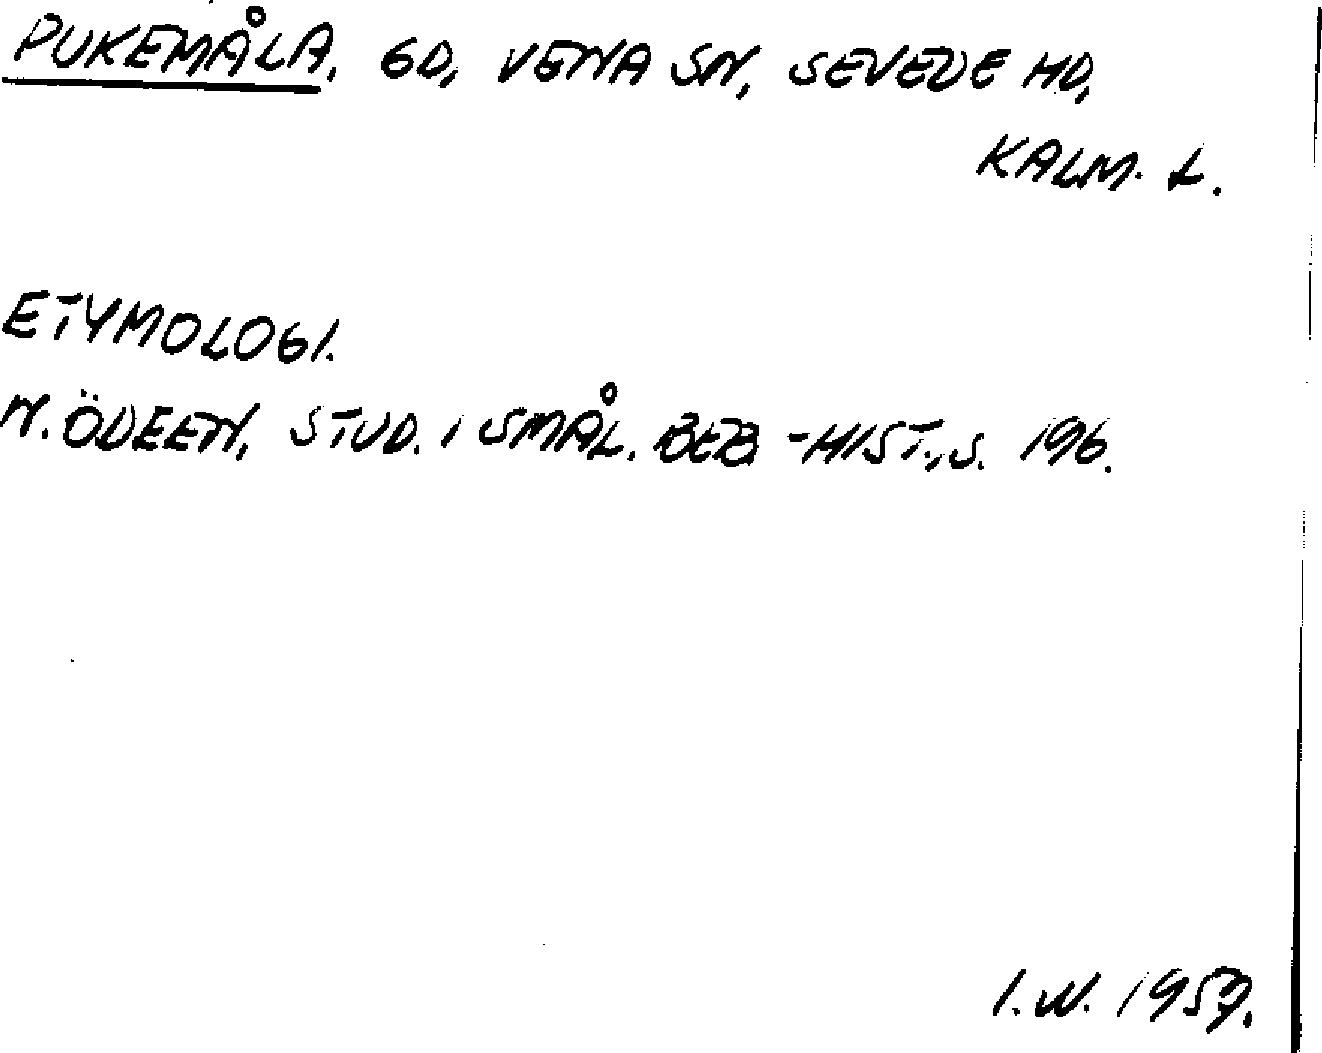 PUKEMÅLA, GD, VENA SN, SEVEDE HD,
KALM. L.
ETYMOLOGI.
N. ÖDEEN, STUD. I SMÅL. BEB.-HIST., S. 196.
I. W. 1959.